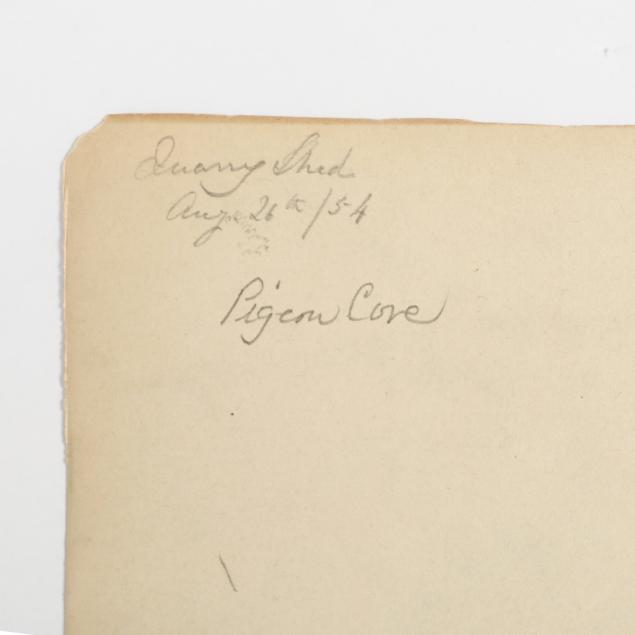 Quarry Shed
Aug. 26th /54
Pigeon Cove